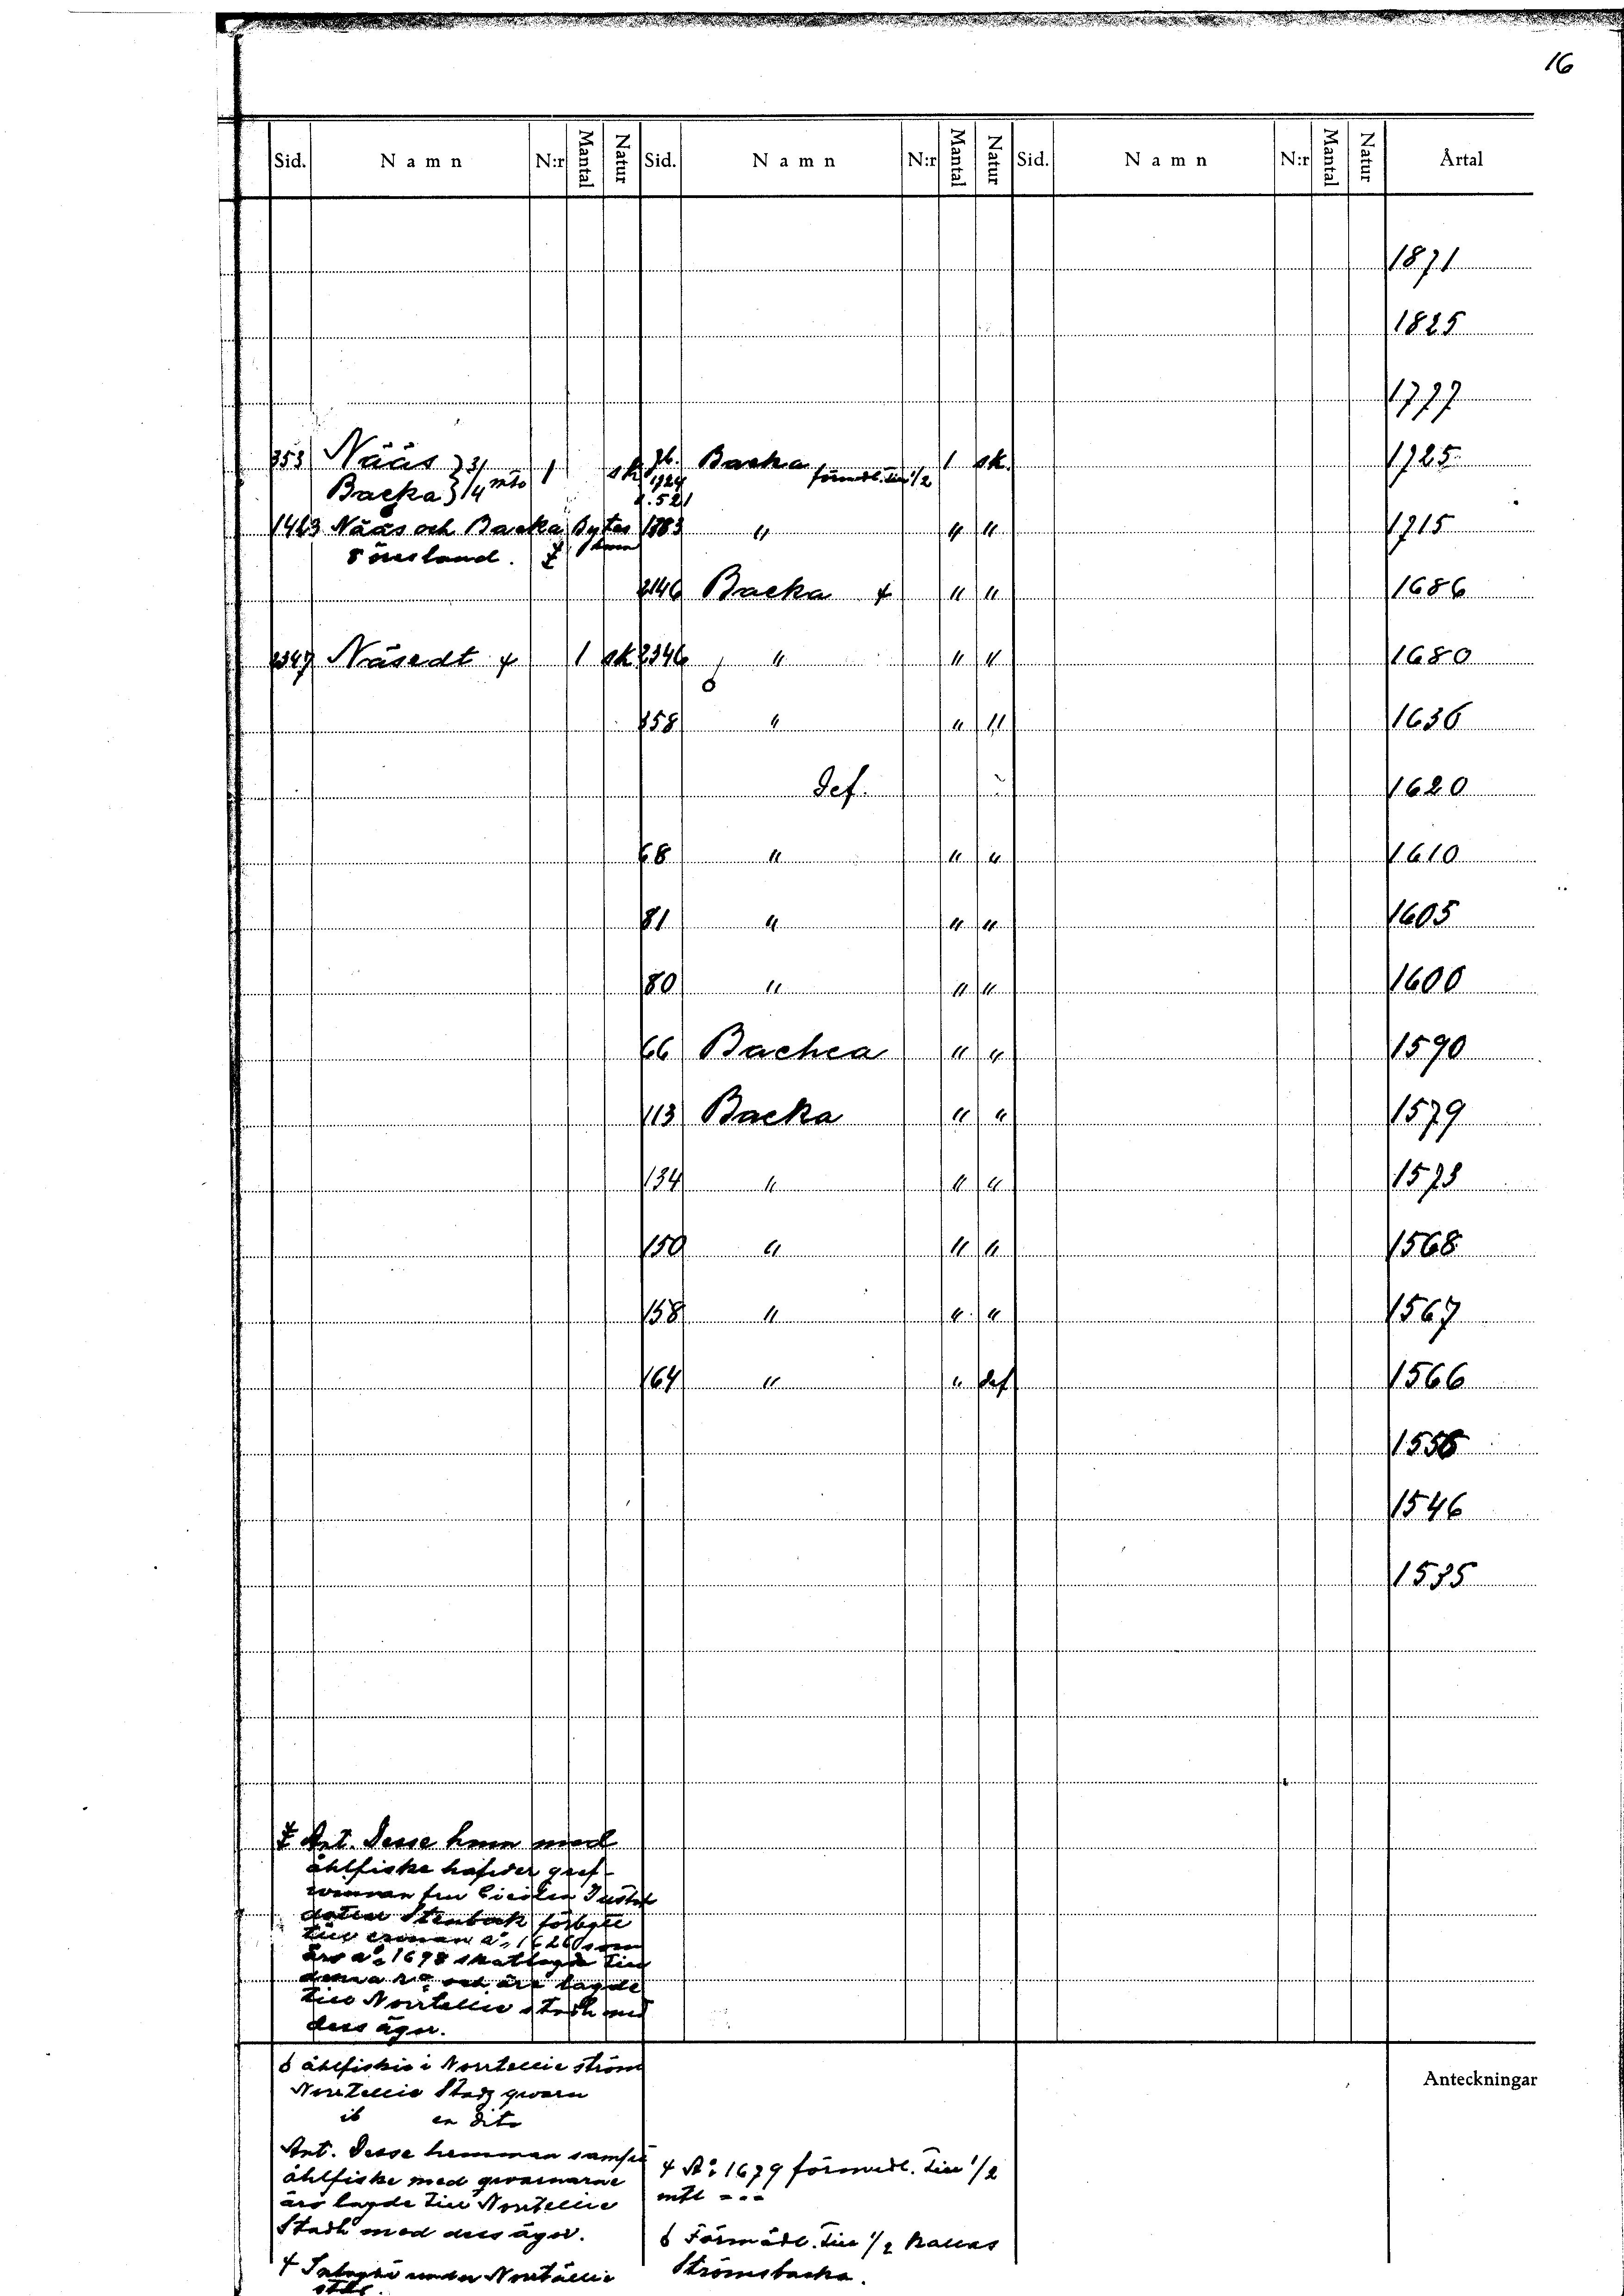 16
Sid. Namn N:r Mantal Natur Sid. Namn N:r Mantal Natur Sid. Namn N:r Mantal Natur Årtal
1871
1825
1777
353 Nääs } 3/4 mto 1 sk jb. 1724 s. 521 Backa förmedl. till 1/2 1 sk. 1725
Backa }
1463 Nääs och Backa Bytes hmn 1783 " " " 1715
8 öresland.
2146 Backa + " " 1686
2347 Näsedt + 1 sk 2346 " " " 1680
358 " " " 1636
Def. 1620
68 " " " 1610
81 " " " 1605
80 " " " 1600
66 Bachca " " 1590
113 Backa " " 1579
134 " " " 1573
150 " " " 1568
158 " " " 1567
164 " " def 1566
1556
1546
1535
Ant. Desse hmn med
åhlfiske hafver gref-
winnan fru Cicilia Gustaf
dotter Stenbock förbytt
till cronan a:o 1626 som
äro a:o 1698 skatlagde till
denna och äro lagde
till Norrtellie stadh med
dess ägor.
ó åhlfiskie i Norrtellie ström
Norrtellie Stadz qwarn
ib en dito
Ant. Desse hemman sampt
åhlfiske med qwarnarne
äro lagde till Norrtellie
Stadh med dess ägor.
+ under Norrtällie
stdh.
+ A:o 1679 förmedl. till 1/2
mtl ---
ó Förmädl. till 1/2 kallas
Strömsbacka.
Anteckningar